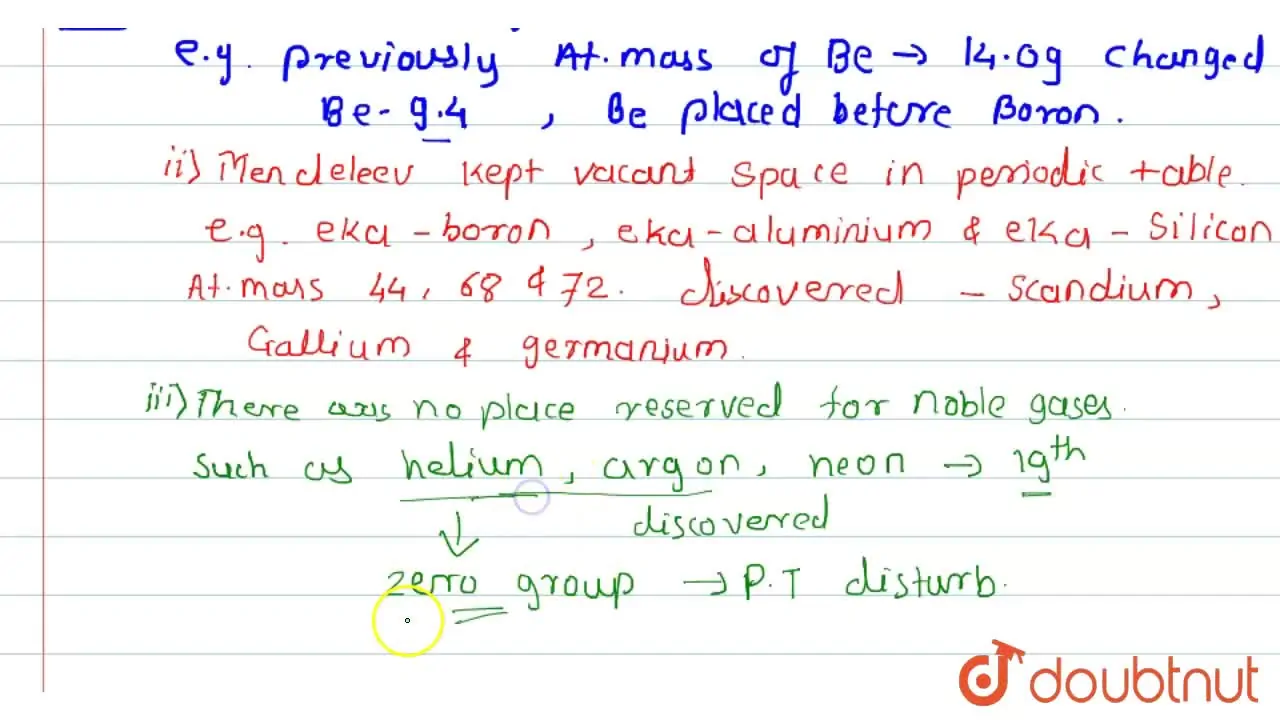 e.g. previously At.mass of Be → 14.09 changed
Be - 9.4 , Be placed before Boron.
ii) Mendeleev kept vacant space in periodic table.
e.g. eka - boron, eka - aluminium & eka - Silicon
At.mass 44, 68 & 72. discovered - Scandium,
Gallium & germanium.
iii) There was no place reserved for noble gases.
Such as helium, argon, neon → 19th
discovered
zero group → P.T disturb.
doubtnut